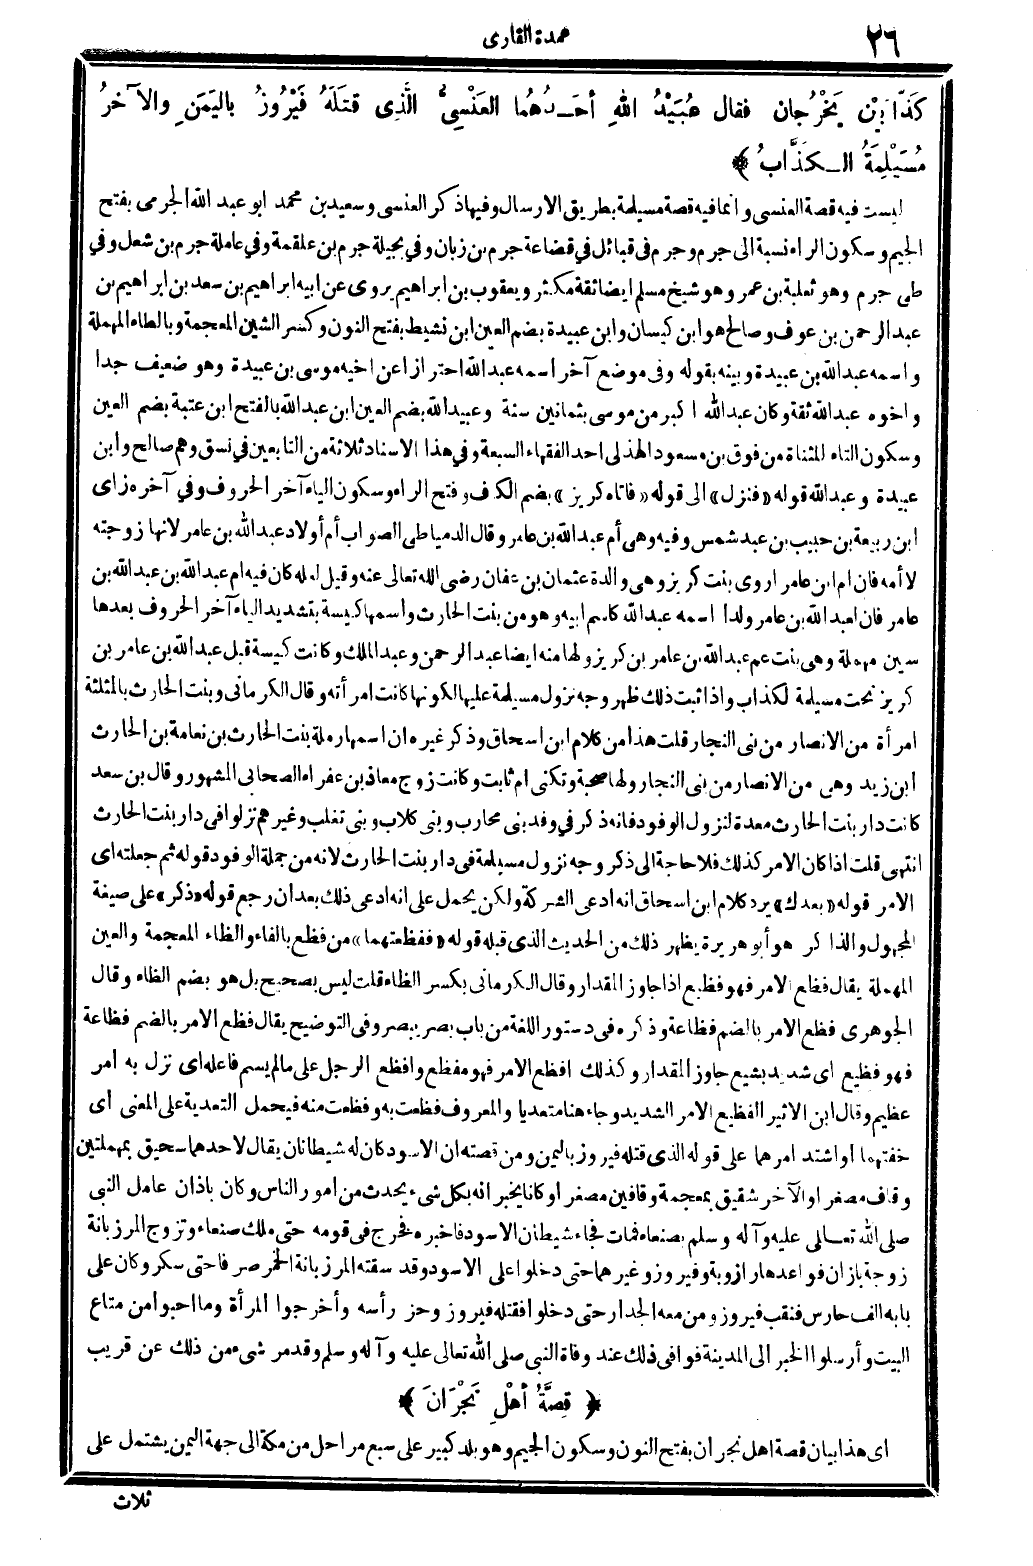 ٢٦
عمدة القارى
كَذَّابَيْنِ يَخْرُجَانِ فقال عُبَيْدُ اللهِ أحَـدُهُما العَنْسِيُّ الَّذِى قَتَلَهُ فَيْرُوزُ باليَمَنِ والآخَرُ
مُسَيْلِمَةُ الـكَذَّابُ ﴾
ليست فيه قصة العنسى وانما فيه قصة مسيلمة بطريق الارسال وفيها ذكر العنسى وسعيد بن محمد ابو عبد الله الجرمى بفتح
الجيم وسكون الراء نسبة الى جرم وجرم فى قبائل فى قضاعة جرم بن زبان وفي بجيلة جرم بن علقمة وفي عاملة جرم بن شعل وفي
طى جرم وهو ثعلبة بن عمر وهو شيخ مسلم ايضا ثقة مكثر ويعقوب بن ابراهيم يروى عن ابيه ابراهيم بن سعد بن ابراهيم بن
عبد الرحمن بن عوف وصالح هو ابن كيسان وابن عبيدة بضم العين ابن نشيط بفتح النون وكسر الشين المعجمة وبالطاء المهملة
واسمه عبد الله بن عبيدة وبينه بقوله وفى موضع آخر اسمه عبد الله احترازا عن اخيه موسى بن عبيدة وهو ضعيف جدا
واخوه عبد الله ثقة وكان عبد الله اكبر من موسى بثمانين سنة وعبيد الله بضم العين ابن عبد الله بالفتح ابن عتبة بضم العين
وسكون التاء المثناة من فوق بن مسعود الهذلى احد الفقهاء السبعة وفي هذا الاسناد ثلاثة من التابعين في نسق وهم صالح وابن
عبيدة وعبد الله قوله «فنزل» الى قوله «فاتاه كريز» بضم الكاف وفتح الراء وسكون الياء آخر الحروف وفي آخره زاى
ابن ربيعة بن حبيب بن عبد شمس وفيه وهى أم عبد الله بن عامر وقال الدمياطى الصواب أم أولاد عبد الله بن عامر لانها زوجته
لا أمه فان ام ابن عامر اروى بنت كريز وهى والدة عثمان بن عفان رضى الله تعالى عنه وقيل لعله كان فيه ام عبد الله بن عبد الله بن
عامر فان لعبد الله بن عامر ولدا اسمه عبد الله كاسم ابيه وهو من بنت الحارث واسمها كيسة بتشديد الياء آخر الحروف بعدها
سين مهملة وهى بنت عم عبد الله بن عامر بن كريز ولها منه ايضا عبد الرحمن وعبد الملك وكانت كيسة قبل عبد الله بن عامر بن
كريز تحت مسيلمة لكذاب واذا ثبت ذلك ظهر وجه نزول مسيلمة عليها لكونها كانت امرأته وقال الكرمانى وبنت الحارث بالمثلثة
امرأة من الانصار من نى النجار قلت هذا من كلام ابن اسحاق وذكر غيره ان اسمها رملة بنت الحارث بن نعامة بن الحارث
ابن زيد وهى من الانصار من بنى النجار ولها صحبة وتكنى ام ثابت وكانت زوج معاذ بن عفراء الصحابى المشهور وقال بن سعد
كانت دار بنت الحارث معدة لنزول الوفود فانه ذكر في وفد بنى محارب وبنى كلاب وبنى تغلب وغيرهم نزلوا فى دار بنت الحارث
انتهى قلت اذا كان الامر كذلك فلا حاجة الى ذكر وجه نزول مسيلمة فى دار بنت الحارث لانه من جملة الوفود قوله ثم جعلته اى
الامر قوله «بعدك» يرد كلام ابن اسحاق انه ادعى الشركة ولكن يحمل على انه ادعى ذلك بعد ان رجع قوله «ذكر» على صيغة
المجهول والذاكر هو أبو هريرة يظهر ذلك من الحديث الذى قبله قوله «ففظعتهما» من فظع بالفاء والظاء المعجمة والعين
المهملة يقال فظع الامر فهو فظيع اذا جاوز المقدار وقال الكرمانى بكسر الظاء قلت ليس بصحيح بل هو بضم الظاء وقال
الجوهرى فظع الامر بالضم فظاعة وذكره فى دستور اللغة من باب بصر يبصر وفى التوضيح يقال فظع الامر بالضم فظاعة
فهو فظيع اى شديد بشيع جاوز المقدار وكذلك افظع الامر فهو مفظع وافظع الرجل على مالم يسم فاعله اى نزل به امر
عظيم وقال ابن الاثير الفظيع الامر الشديد وجاء هنا متعديا والمعروف فظعت به وفظعت منه فيحمل التعدية على المعنى أى
خفتهما أو اشتد امرهما على قوله الذى قتله فيروز باليمن ومن قصته ان الاسود كان له شيطانان يقال لاحدهما سحيق بمهملتين
وقاف مصغر او الآخر شقيق بمعجمة وقافين مصغر اوكانا يخبرانه بكل شىء يحدث من امور الناس وكان باذان عامل النبى
صلى الله تعـالى عليه وآله وسلم بصنعاء فمات فجاء شيطان الاسود فاخبره فخرج فى قومه حتى ملك صنعاء وتزوج المرزبانة
زوجة باذان فواعدها رازوبة وفيروز وغيرهما حتى دخلوا على الاسود وقد سقته المرزبانة الخمر صرفا حتى سكر وكان على
بابه الف حارس فنقب فيروز ومن معه الجدار حتى دخلوا فقتله فيروز وحز رأسه وأخرجوا المرأة وما احبوا من متاع
البيت وأرسلوا الخبر الى المدينة فوافى ذلك عند وفاة النبى صلى الله تعالى عليه وآله وسلم وقد مر شىء من ذلك عن قريب
﴿ قِصَّةُ أهْلِ نَجْرَانَ ﴾
اى هذا بيان قصة اهل نجران بفتح النون وسكون الجيم وهو بلد كبير على سبع مراحل من مكة الى جهة اليمن يشتمل على
ثلاث